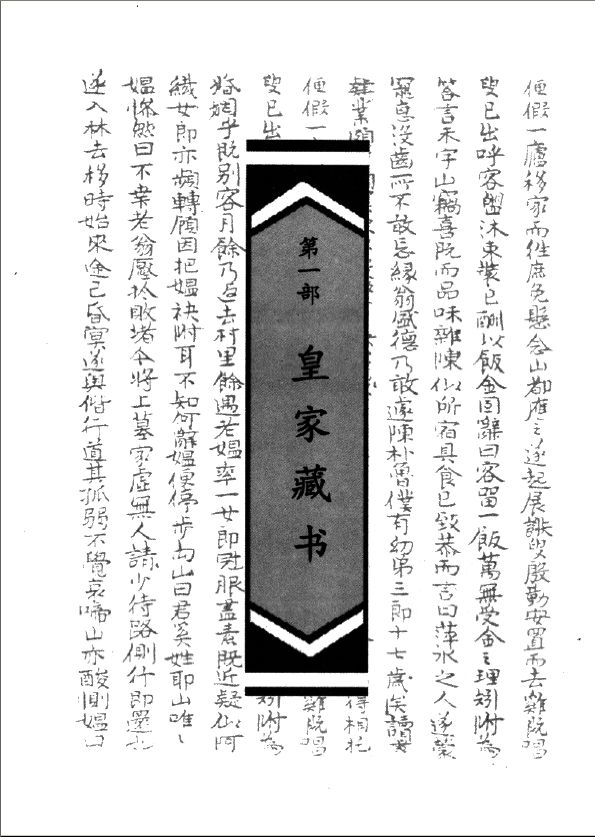 第一部
皇家藏书
便假一廬移家而往庶免懸念山都應之遂起展謝叟殷勤安置而去雞既唱
叟已出呼客盥沐束裝已酬以飯金固辭曰客留一飯萬無受金之理矧附為
答言禾字山竊喜既而品味雜陳似所宿具食已致恭而言曰萍水之人遂蒙
寵惠沒齒所不敢忘緣翁盛德乃敢遽陳朴魯僕有幼弟三郎十七歲矣讀書
肄業頗 得相托
便假一 雞既唱
叟已出 矧附為
婚姻乎既別客月餘乃返去村里餘遇老媼率一女郎冠服盡素既近疑似阿
纖女郎亦頻轉顧因把媼袂附耳不知何辭媼便停步向山曰君奚姓耶山唯〻
媼慘然曰不幸老翁壓於敗堵今將上墓家虛無人請少待路側行即還也
遂入林去移時始來途已昏冥遂與偕行道其孤弱不覺哀啼山亦酸惻媼曰